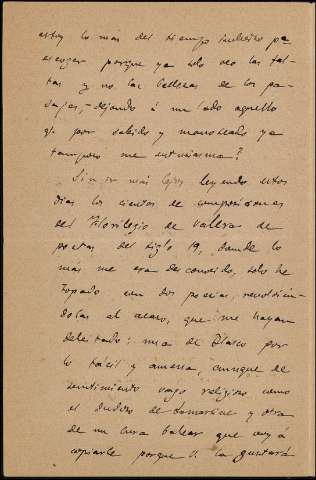 estoy lo más del tiempo indeciso pa
escoger porque ya solo veo las fal-
tas y no las bellezas de los pa-
sajes, - dejando á un lado aquello
q. por sabido y manoseado ya
tampoco me entusiasma?
Sin ir más lejos leyendo estos
días los cientos de composiciones
del Florilegio de Valera de
poetas del siglo 19, donde lo
más me era desconocido, solo he
topado con dos poesías, revolvién-
dolas al acaso, que me hayan
deleitado: una de Blasco por
lo fácil y amena, aunque de
sentimiento vago religioso como
el de Lamartine y otra
de un cura balear que voy á
copiarle porque á V. le gustará